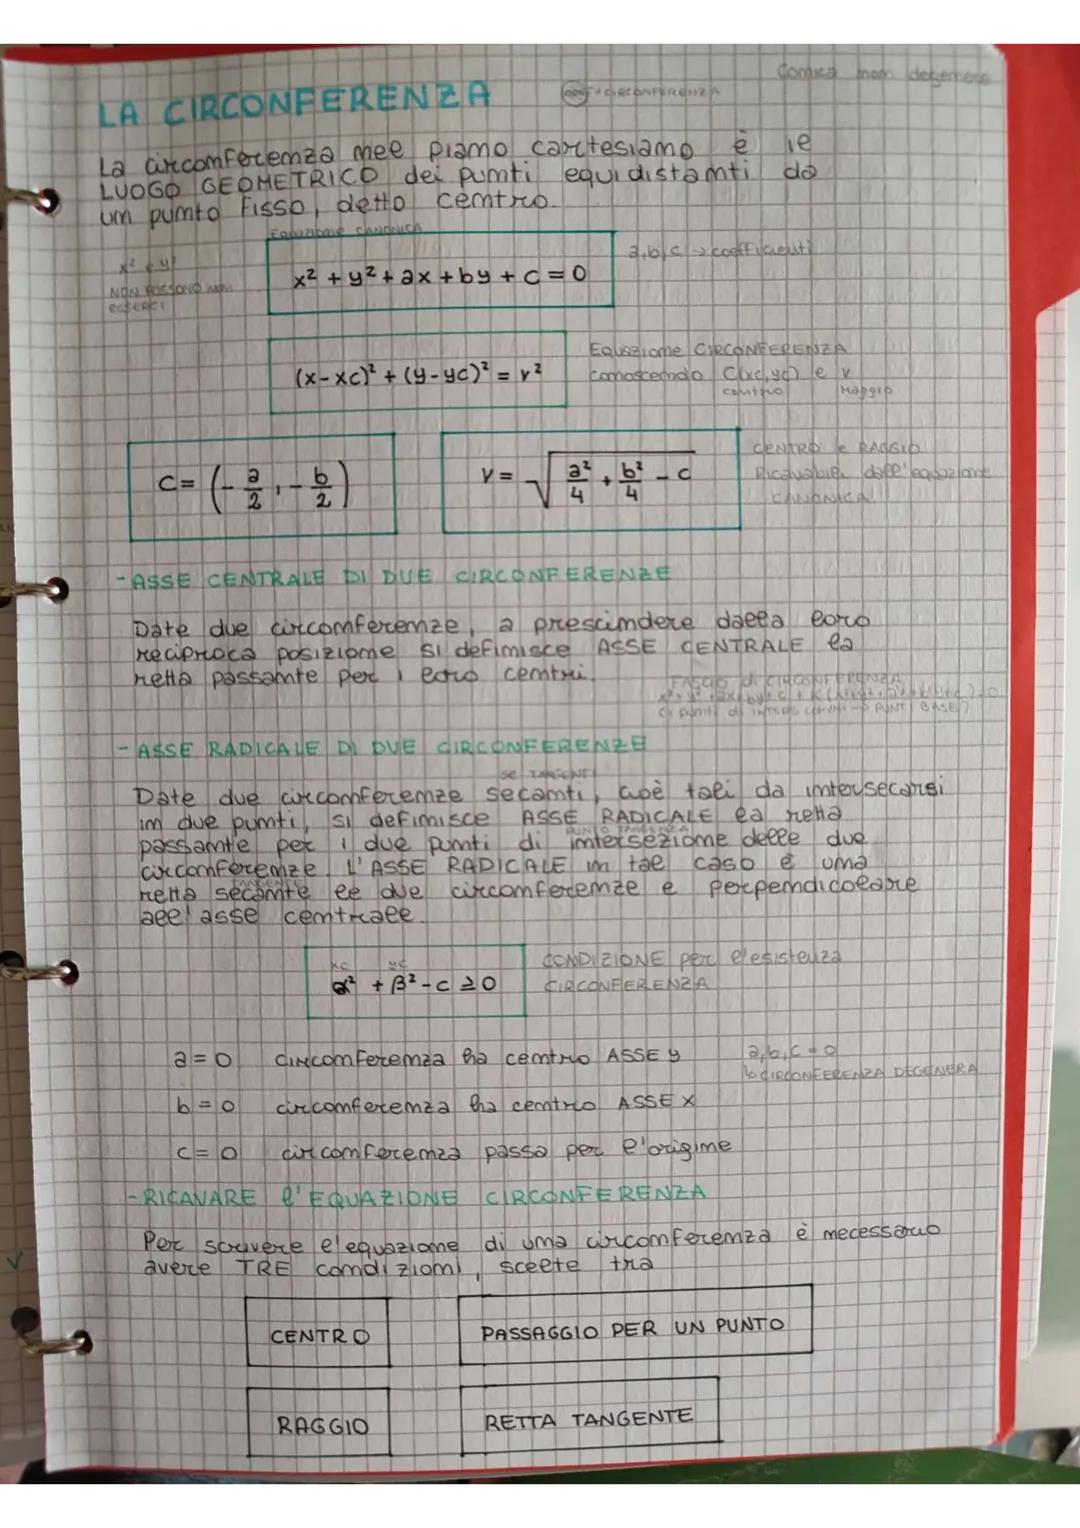 Conica non degenere
LA CIRCONFERENZA
CIRCONFERENZA
La circonferenza nel piano cartesiano è il
LUOGO GEOMETRICO dei punti equidistanti da
un punto fisso, detto centro.
Equazione CANONICA
x² e y²
NON POSSONO non
esserci
x² + y² + ax + by + c = 0
a, b, c → coefficienti
(x-xc)² + (y-yc)² = r²
Equazione CIRCONFERENZA
conoscendo C(xc, yc) e r
centro raggio
C = (- a/2 , - b/2)
r = √ a²/4 + b²/4 - c
CENTRO e RAGGIO
Ricavabili dall'equazione
CANONICA!
- ASSE CENTRALE DI DUE CIRCONFERENZE
Date due circonferenze, a prescindere dalla loro
reciproca posizione si definisce ASSE CENTRALE la
retta passante per i loro centri.
FASCIO di CIRCONFERENZA
PUNTI BASE)
- ASSE RADICALE DI DUE CIRCONFERENZE
se TANGENTI
Date due circonferenze secanti, cioè tali da intersecarsi
in due punti, si definisce ASSE RADICALE la retta
PUNTO TANGENZA
passante per i due punti di intersezione delle due
circonferenze. L'ASSE RADICALE in tal caso è una
TANGENTE
retta secante le due circonferenze e perpendicolare
all'asse centrale.
xc yc
α² + β² - c ≥ 0
CONDIZIONE per l'esistenza
CIRCONFERENZA
a = 0 circonferenza ha centro ASSE y
a, b, c = 0
↳ CIRCONFERENZA DEGENERA
b = 0 circonferenza ha centro ASSE X
c = 0 circonferenza passa per l'origine
- RICAVARE l'EQUAZIONE CIRCONFERENZA
Per scrivere l'equazione di una circonferenza è necessario
avere TRE condizioni, scelte tra
CENTRO
PASSAGGIO PER UN PUNTO
RAGGIO
RETTA TANGENTE